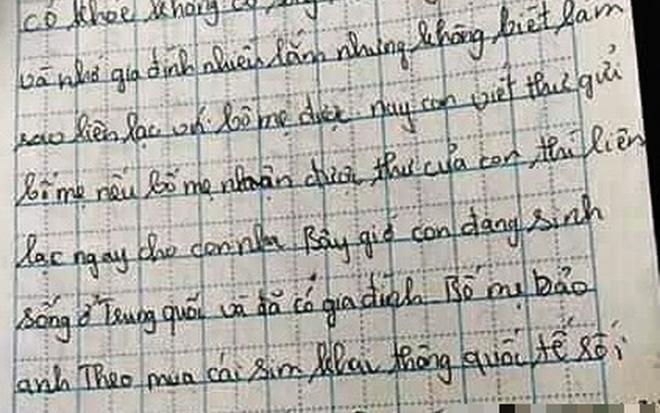 có khoẻ không có
và nhớ gia đình nhiều lắm nhưng không biết làm
sao liên lạc với bố mẹ được nay con viết thư gửi
bố mẹ nếu bố mẹ nhận được thư của con thì liên
lạc ngay cho con nha Bây giờ con đang sinh
sống ở Trung quốc và đã có gia đình Bố mẹ bảo
anh Theo mua cái sim khai thông quốc tế số